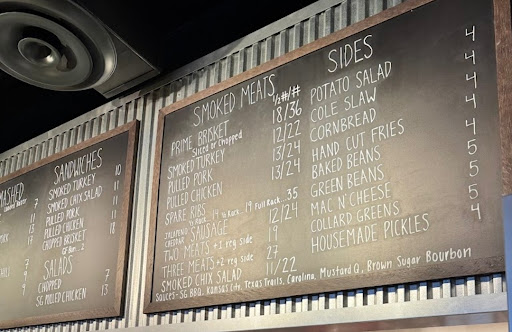 MASHED
7
7
11
7
7
SANDWICHES
SMOKED TURKEY 10
SMOKED CHIX SALAD 11
PULLED PORK 11
PULLED CHICKEN 11
CHOPPED BRISKET 13
GF Bun .. 2
SALADS
CHOPPED 7
SG PULLED CHICKEN 13
SMOKED MEATS ½#/#
PRIME BRISKET 18/36
Sliced or Chopped
SMOKED TURKEY 12/22
PULLED PORK 13/24
PULLED CHICKEN 13/24
SPARE RIBS
19 ½ Rack.. 19 Full Rack...35
JALAPENO CHEDDAR SAUSAGE 12/24
TWO MEATS +1 reg side 19
THREE MEATS +2 reg side 27
SMOKED CHIX SALAD 11/22
Sauces-SG BBQ, Kansas City, Texas Traits, Carolina, Mustard Q, Brown Sugar Bourbon
SIDES
POTATO SALAD 4
COLE SLAW 4
CORNBREAD 4
HAND CUT FRIES 4
BAKED BEANS 4
GREEN BEANS 5
MAC N' CHEESE 5
COLLARD GREENS 5
HOUSEMADE PICKLES 4